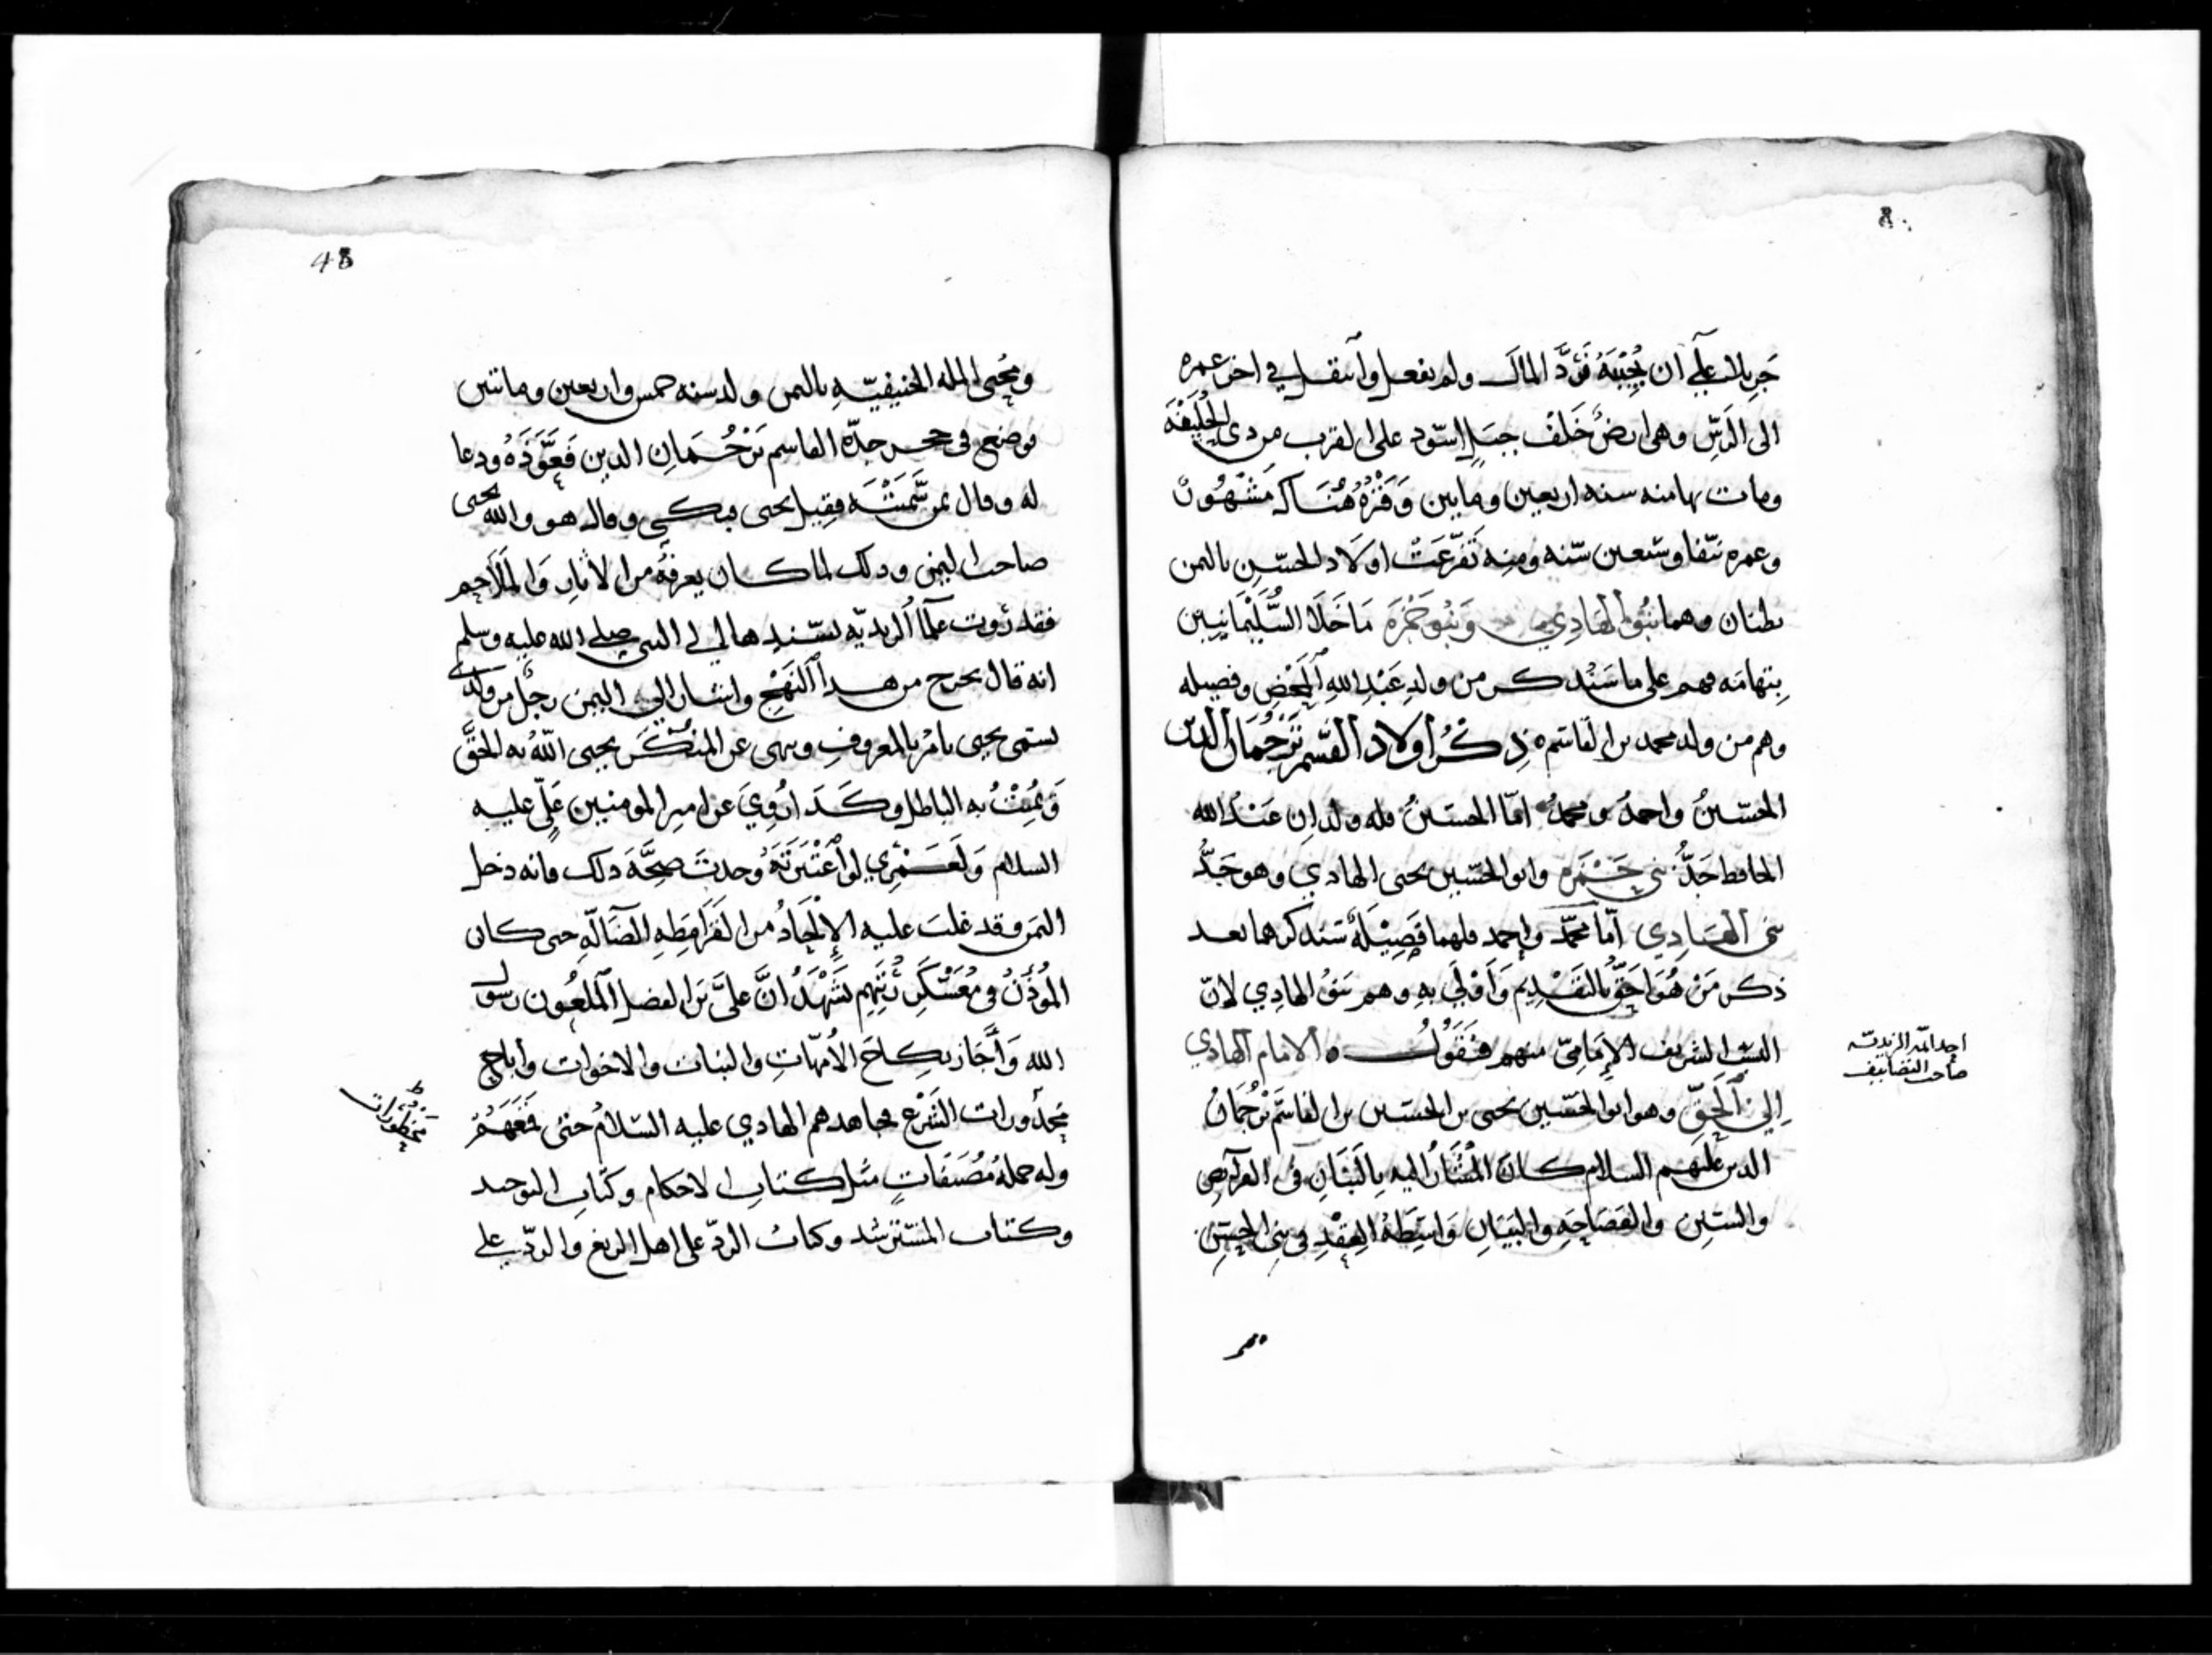 جزيلا على ان يجيبه فرد المال ولم يفعل وانتقل في اخر عمره
الى الرس وهي ارض خلف جبل اسود على القرب من ذي الحليفة
ومات بها منه سنه اربعين ومايين وقبره هناك مشهور
وعمره نيفا وسبعين سنه ومنه تفرعت اولاد الحسين باليمن
بطنان وهما بنو الهادي وبنو حمزة ما خلا السليمانيين
بتهامه فهم على ما سنذكر من ولد عبد الله المحض وفصيله
وهم من ولد محمد بن القاسم ه ذكر اولاد القسم ترجمان الدين
الحسين واحمد ومحمد اما الحسين فله ولدان عبد الله
الحافظ جد بني حمزه وابو الحسين يحيى الهادي وهو جد
بني الهادي اما محمد واحمد فلهما فصيلة سنذكرهما بعد
ذكر من هو احق بالتقديم واولى به وهم بنو الهادي لان
البيت الشريف الإمامي منهم فنقول ه الامام الهادي
احد ائمة الزيدية
صاحب التصانيف
إلى الحق وهو ابو الحسين يحيى بن الحسين بن القاسم ترجمان
الدين عليهم السلام كان المشار اليه بالبنان في الفرائض
والسنن والفصاحة والبيان واسطة العقد في بني الحسن
48
ومحيى المله الحنيفية باليمن ولد سنه خمس واربعين ومائتين
فوضع في حجر جده القاسم ترجمان الدين فعوذه ودعا
له وقال بمن سميته فقيل يحيى فبكى وقال هو والله يحيى
صاحب اليمن وذلك لما كان يعرفه من الاثار والملاحم
فقد روت علما الزيدية بسندها الى النبي صلى الله عليه وسلم
انه قال يخرج من هذا النهج واشار الى اليمن رجل من ولدي
يسمى يحيى يامر بالمعروف وينهى عن المنكر يحيى الله به الحق
ويميت به الباطل وكذا روي عن امير المومنين علي عليه
السلام ولعمري لو اعتبرته وجدت صحة ذلك فانه دخل
اليمن وقد غلب عليه الإلحاد من القرامطه الضالة حتى كان
المؤذن في معسكر رئيهم يشهد ان علي بن الفضل الملعون رسول
الله واجاز نكاح الأمهات والبنات والاخوات واباح
محذورات الشرع فجاهدهم الهادي عليه السلام حتى قمعهم
محظورات
وله جملة مصنفات مثل كتاب الاحكام وكتاب التوحيد
وكتاب المسترشد وكتاب الرد على اهل الزيغ والرد على